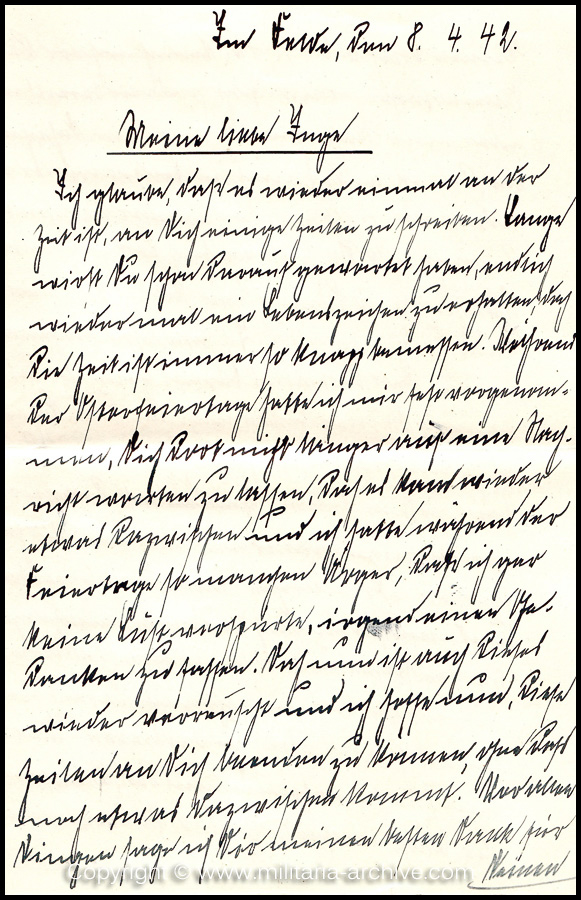 Im Felde, den 8. 4. 42.
Meine liebe Inge
Ich glaube, daß es wieder einmal an der
Zeit ist, an Dich einige Zeilen zu schreiben. Lange
wirst Du schon darauf gewartet haben, endlich
wieder mal ein Lebenszeichen zu erhalten, doch
die Zeit ist immer so knapp bemessen. Während
der Osterfeiertage hatte ich mir fest vorgenom-
men, Dich doch nicht länger auf eine Nach-
richt warten zu lassen, doch es kam wieder
etwas dazwischen und ich hatte während der
Feiertage so manchen Ärger, daß ich gar
keine Lust verspürte, irgend einen Ge-
danken zu fassen. Doch nun ist auch dieses
wieder verrauscht und ich hoffe nun, diese
Zeilen an Dich beenden zu können, ohne daß
noch etwas dazwischen kommt. Vor allen
Dingen sage ich Dir meinen besten Dank für
Deinen
Copyright © www.militaria-archive.com